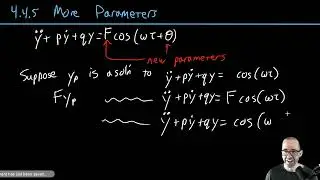 4.4.5 More Parameters
ÿ + pẏ + qy = F cos(ωt + θ)
new parameters
Suppose yₚ is a soln to ÿ + pẏ + qy = cos(ωt)
Fyₚ ÿ + pẏ + qy = F cos(ωt)
ÿ + pẏ + qy = cos(ω +